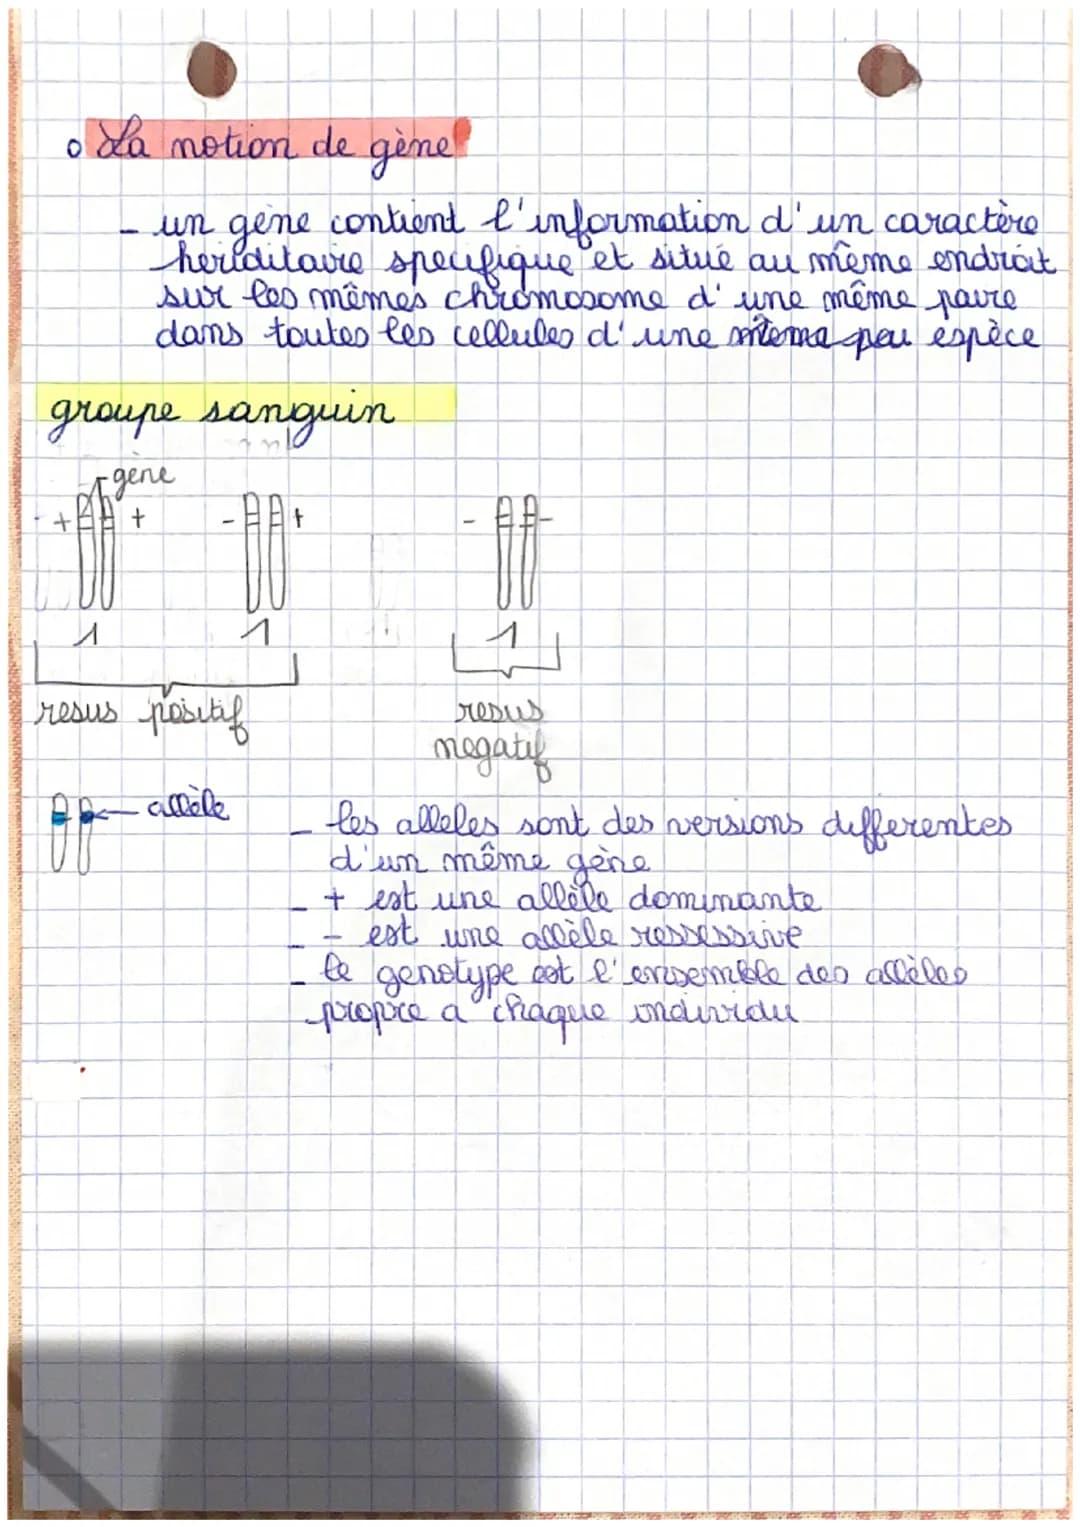 La notion de gène
- un gène contient l'information d'un caractère
heriditaire specifique et situé au même endroit
sur les mêmes chromosome d'une même paire
dans toutes les cellules d'une même espèce
groupe sanguin
gène
+ + - + - -
1 1 1
resus positif resus
negatif
allèle
- les alleles sont des versions differentes
d'un même gène
- + est une allèle dominante
- - est une allèle ressessive
- le genotype est l'ensemble des allèles
propre a chaque individu